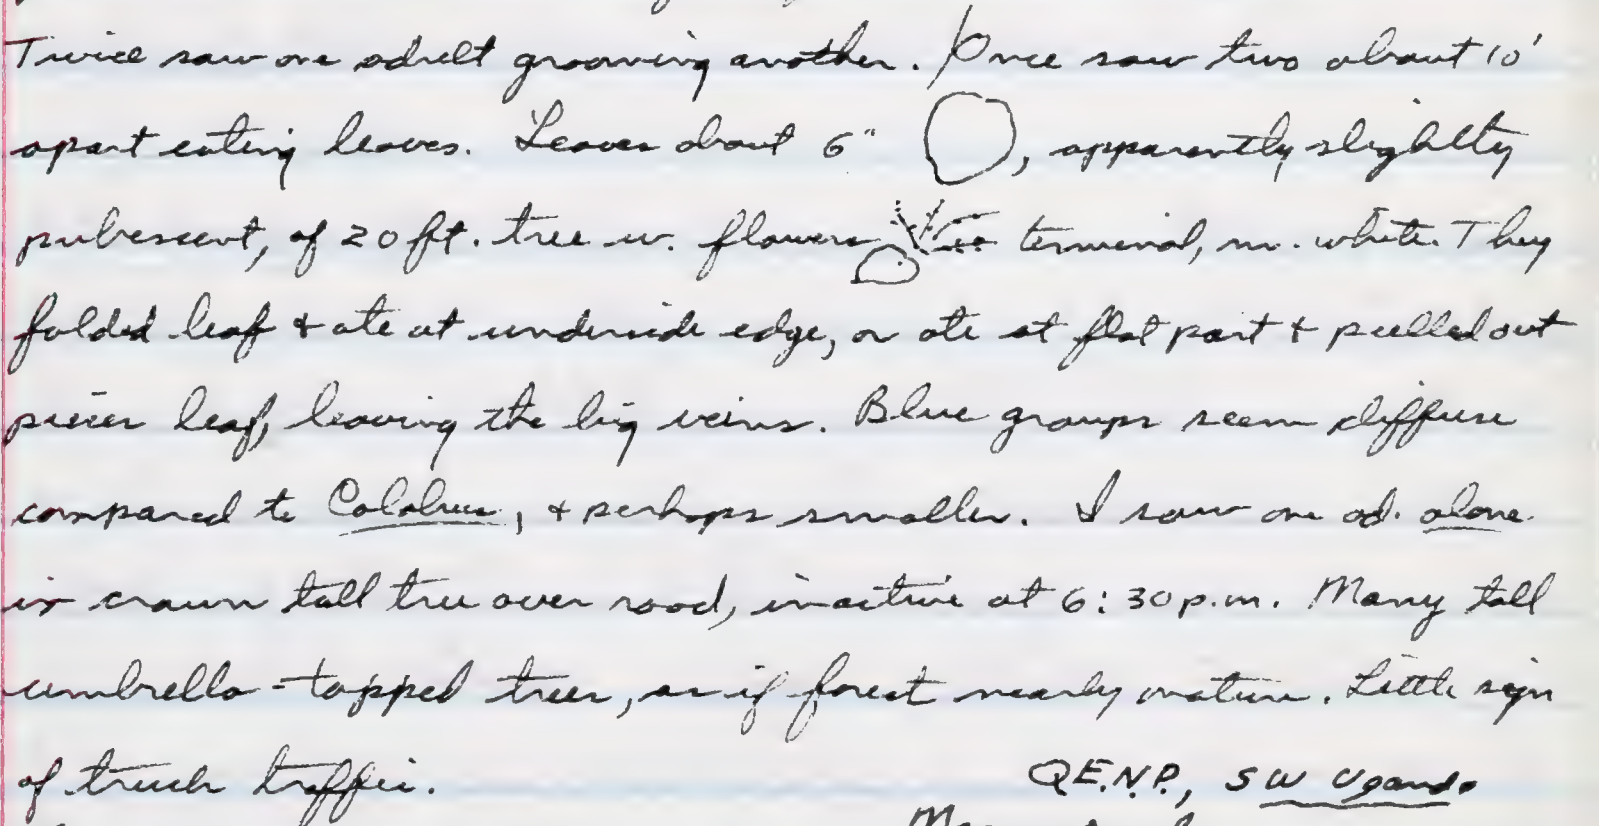 Twice saw one adult grooming another. Once saw two about 10'
apart eating leaves. Leaves about 6" , apparently slightly
pubescent, of 20 ft. tree w. flowers terminal, m. white. They
folded leaf & ate at underside edge, or ate at flat part & pulled out
pieces leaf, leaving the big veins. Blue groups seem diffuse
compared to Colobus, & perhaps smaller. I saw one ad. alone
in crown tall tree over road, inactive at 6:30 p.m. Many tall
umbrella-topped trees, as if forest nearly mature. Little sign
of truck traffic.
Q.E.N.P., SW Uganda